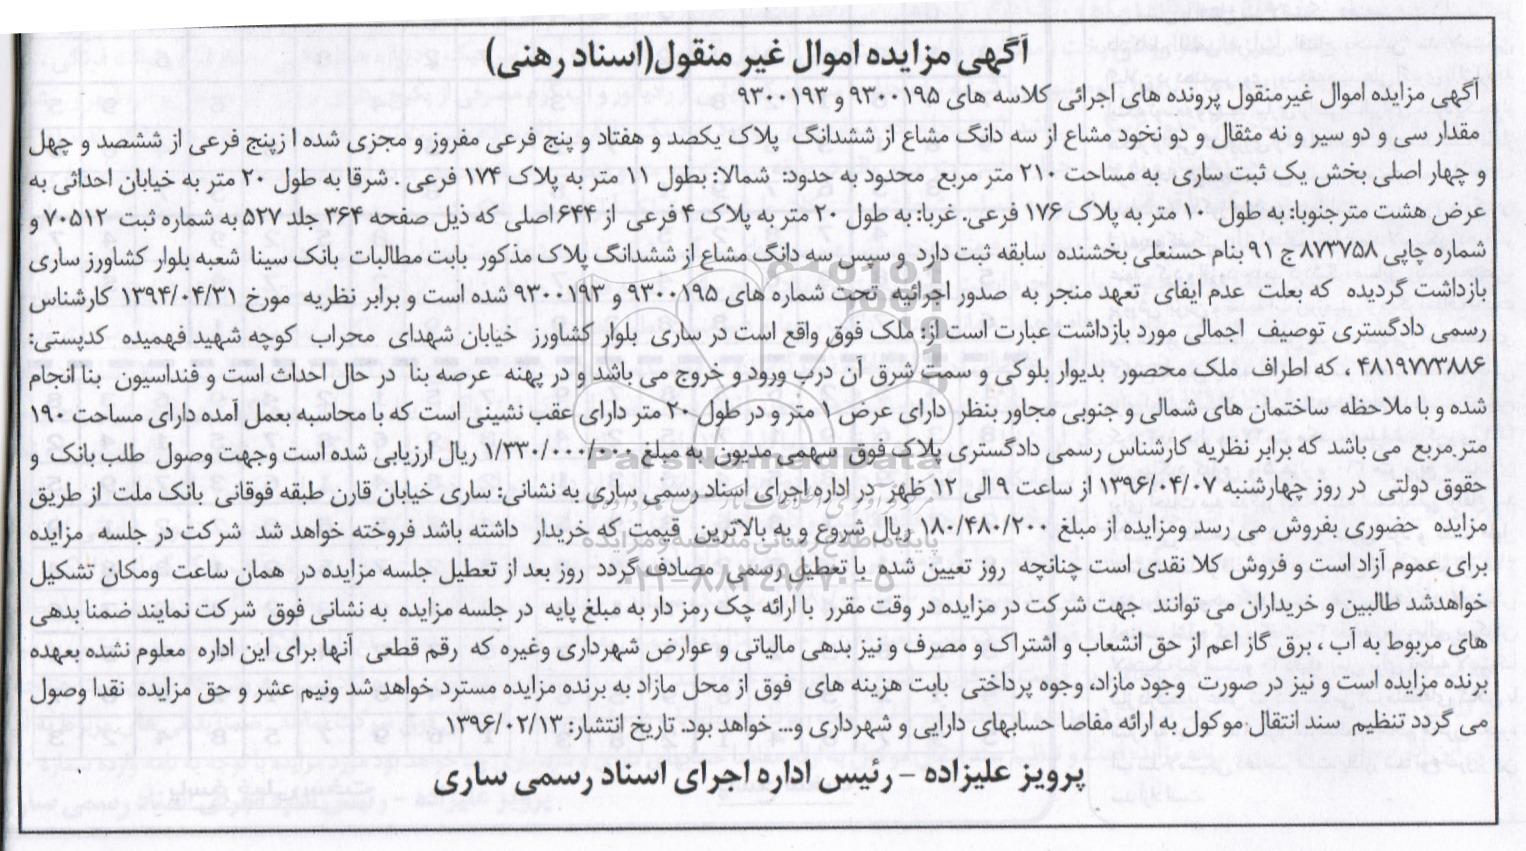 آگهی مزایده اموال غیر منقول(اسناد رهنی)
آگهی مزایده اموال غیرمنقول پرونده های اجرائی کلاسه های ۹۳۰۰۱۹۵ و ۹۳۰۰۱۹۳
مقدار سی و دو سیر و نه مثقال و دو نخود مشاع از سه دانگ مشاع از ششدانگ پلاک یکصد و هفتاد و پنج فرعی مفروز و مجزی شده ا زپنج فرعی از ششصد و چهل
و چهار اصلی بخش یک ثبت ساری به مساحت ۲۱۰ متر مربع محدود به حدود: شمالا: بطول ۱۱ متر به پلاک ۱۷۴ فرعی . شرقا به طول ۲۰ متر به خیابان احداثی به
عرض هشت مترجنوبا: به طول ۱۰ متر به پلاک ۱۷۶ فرعی، غربا: به طول ۲۰ متر به پلاک ۴ فرعی از ۶۴۴ اصلی که ذیل صفحه ۳۶۴ جلد ۵۲۷ به شماره ثبت ۷۰۵۱۲ و
شماره چاپی ۸۷۳۷۵۸ ج ۹۱ بنام حسنعلی بخشنده سابقه ثبت دارد و سپس سه دانگ مشاع از ششدانگ پلاک مذکور بابت مطالبات بانک سینا شعبه بلوار کشاورز ساری
بازداشت گردیده که بعلت عدم ایفای تعهد منجر به صدور اجرائیه تحت شماره های ۹۳۰۰۱۹۵ و ۹۳۰۰۱۹۳ شده است و برابر نظریه مورخ ۱۳۹۴/۰۴/۳۱ کارشناس
رسمی دادگستری توصیف اجمالی مورد بازداشت عبارت است از: ملک فوق واقع است در ساری بلوار کشاورز خیابان شهدای محراب کوچه شهید فهمیده کدپستی:
۴۸۱۹۷۷۳۸۸۶ ، که اطراف ملک محصور بدیوار بلوکی و سمت شرق آن درب ورود و خروج می باشد و در پهنه عرصه بنا در حال احداث است و فنداسیون بنا انجام
شده و با ملاحظه ساختمان های شمالی و جنوبی مجاور بنظر دارای عرض ۱ متر و در طول ۲۰ متر دارای عقب نشینی است که با محاسبه بعمل آمده دارای مساحت ۱۹۰
متر مربع می باشد که برابر نظریه کارشناس رسمی دادگستری پلاک فوق سهمی مدیون به مبلغ ۱/۳۳۰/۰۰۰/۰۰۰ ریال ارزیابی شده است وجهت وصول طلب بانک و
حقوق دولتی در روز چهارشنبه ۱۳۹۶/۰۴/۰۷ از ساعت ۹ الی ۱۲ ظهر در اداره اجرای اسناد رسمی ساری به نشانی: ساری خیابان قارن طبقه فوقانی بانک ملت از طریق
مزایده حضوری بفروش می رسد ومزایده از مبلغ ۱۸۰/۴۸۰/۲۰۰ ریال شروع و به بالاترین قیمت که خریدار داشته باشد فروخته خواهد شد شرکت در جلسه مزایده
برای عموم آزاد است و فروش کلا نقدی است چنانچه روز تعیین شده با تعطیل رسمی مصادف گردد روز بعد از تعطیل جلسه مزایده در همان ساعت ومکان تشکیل
خواهدشد طالبین و خریداران می توانند جهت شرکت در مزایده در وقت مقرر با ارائه چک رمز دار به مبلغ پایه در جلسه مزایده به نشانی فوق شرکت نمایند ضمنا بدهی
های مربوط به آب ، برق گاز اعم از حق انشعاب و اشتراک و مصرف و نیز بدهی مالیاتی و عوارض شهرداری وغیره که رقم قطعی آنها برای این اداره معلوم نشده بعهده
برنده مزایده است و نیز در صورت وجود مازاد، وجوه پرداختی بابت هزینه های فوق از محل مازاد به برنده مزایده مسترد خواهد شد ونیم عشر و حق مزایده نقدا وصول
می گردد تنظیم سند انتقال موکول به ارائه مفاصا حسابهای دارایی و شهرداری و... خواهد بود. تاریخ انتشار: ۱۳۹۶/۰۲/۱۳
پرویز علیزاده – رئیس اداره اجرای اسناد رسمی ساری
ParsNamadData
پایگاه اطلاع رسانی مناقصه و مزایده